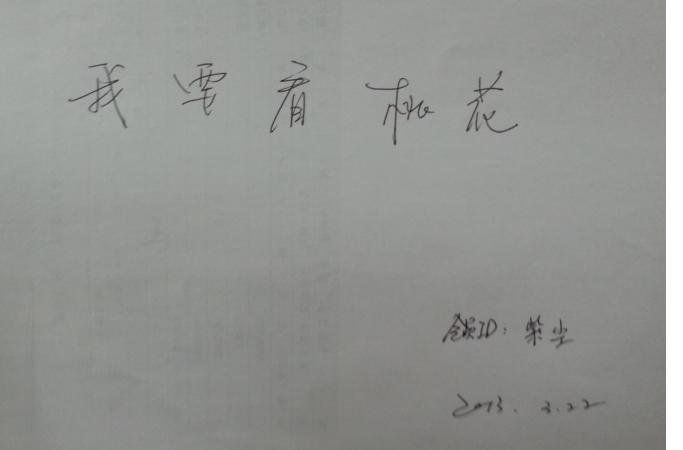 我要看桃花
会员ID：紫尘
2013.3.22